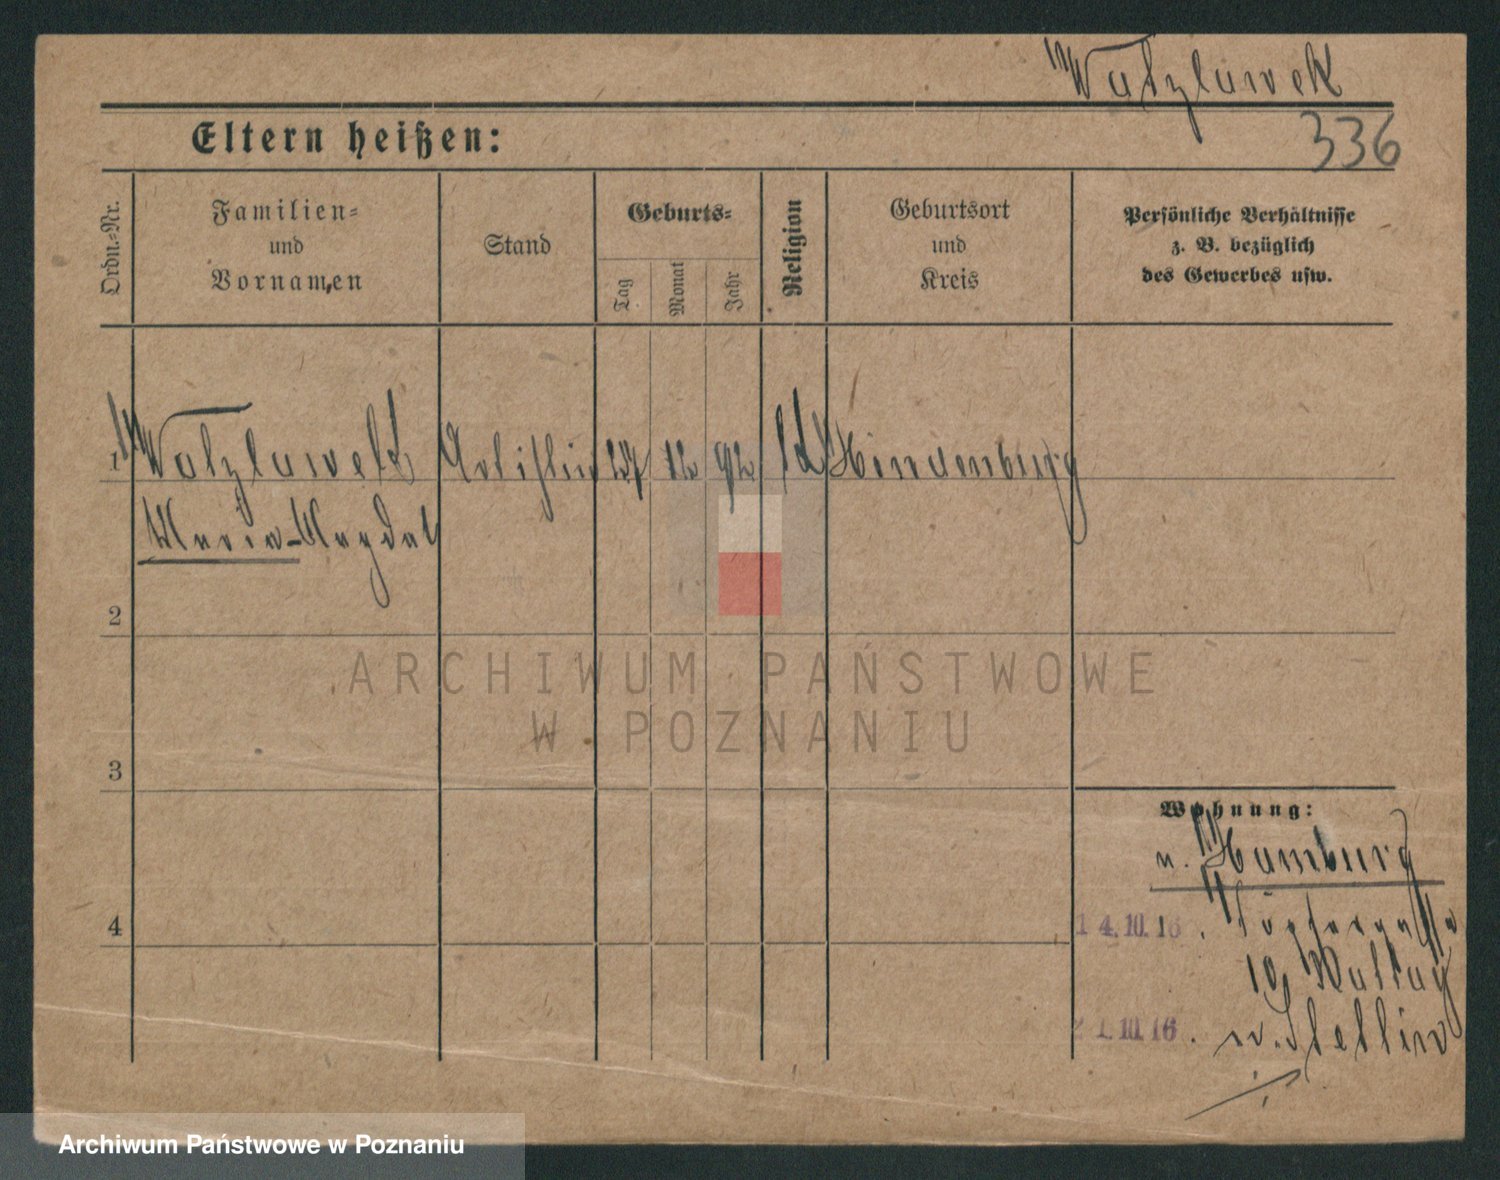 Watzlawek
336
Eltern heißen:
Ordn.-Nr.
Familien-
und
Vornamen
Stand
Geburts-
Tag
Monat
Jahr
Religion
Geburtsort
und
Kreis
Persönliche Verhältnisse
z. B. bezüglich
des Gewerbes usw.
1 Watzlawek Artistin 27 12 92 Hindenburg
Maria-Magdal
2
3
4
Wohnung:
n. Hamburg
14.10.16.
10,
21.10.16. n. Stettin
ARCHIWUM PAŃSTWOWE
W POZNANIU
Archiwum Państwowe w Poznaniu